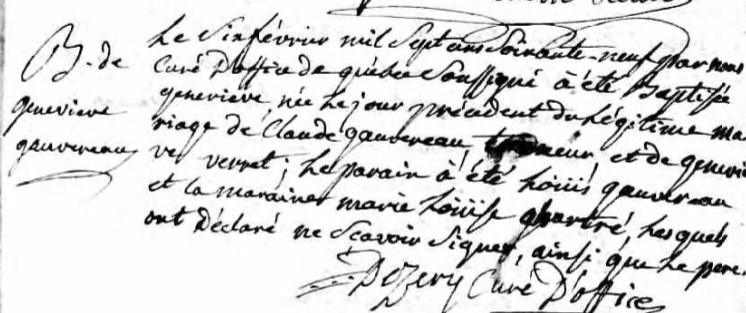 B. de
genevieve
gauvereau
Le Six février mil Sept cens Soixante-neuf par nous
Curé D'office de québec Soussigné à été Baptisée
genevieve, née le jour précédent du légitime ma
riage de Claude gauvereau et de genevie
ve verret; le parain à été Loüis gauvereau
et la maraine marie Loüise chartré, lesquels
ont Déclaré ne Scavoir Signer, ainsi que le pere.
Dezery Curé D'office